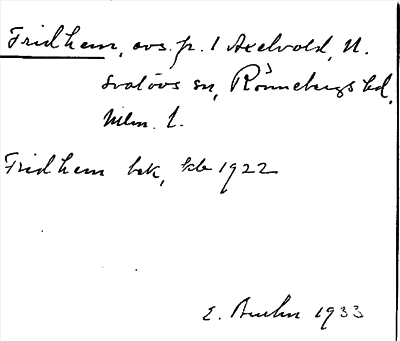 Fridhem, avs. fr. 1 Axelvold, N.
Svalövs sn, Rönnebergs hd,
Mlm. l.
Fridhem bek, kb 1922
E. 1933